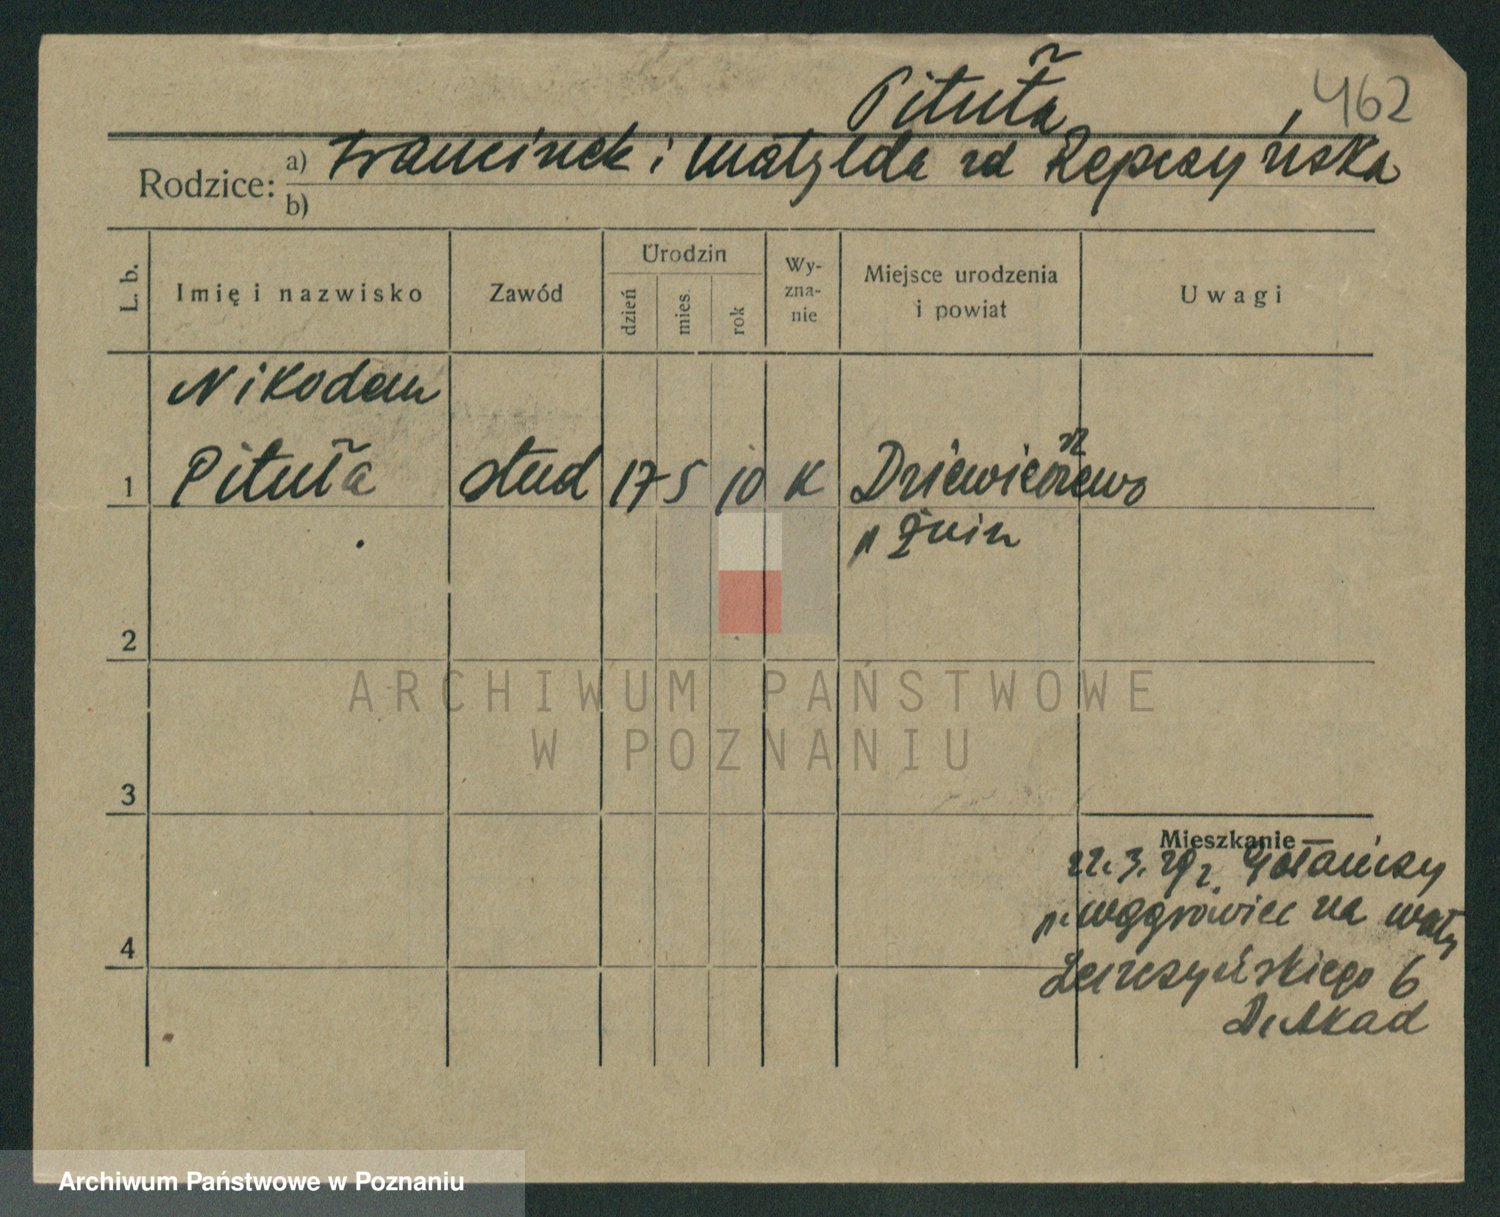 Pituła
462
Rodzice: a) Franciszek i Matylda zd Repczyńska
b)
L. b.
Imię i nazwisko
Zawód
Urodzin
dzień
mies.
rok
Wy-
zna-
nie
Miejsce urodzenia
i powiat
Uwagi
Nikodem
1 Pituła stud 17 5 10 K Dziewierzewo
p Żnin
2
3
4
Mieszkanie
22.3.29 z Gołańczy
p. Wągrowiec na Wały
Leszczyńskiego 6
D. Akad
ARCHIWUM PAŃSTWOWE
W POZNANIU
Archiwum Państwowe w Poznaniu